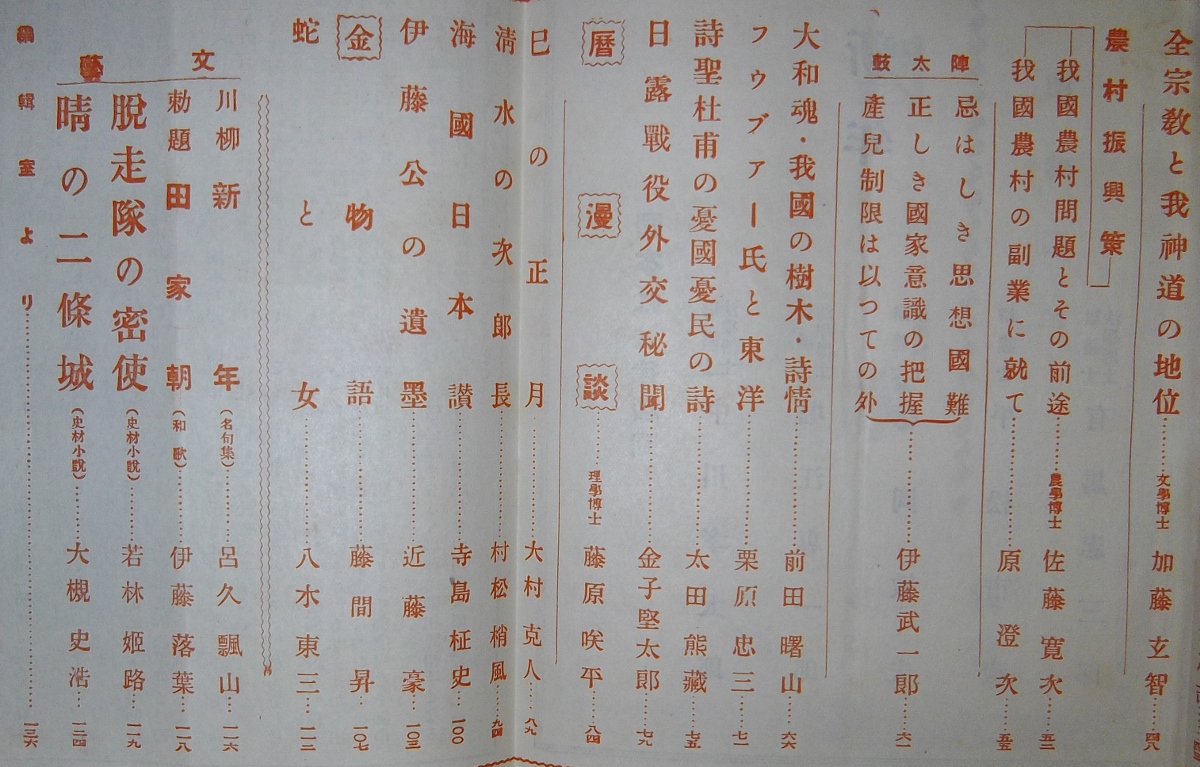 全宗教と我神道の地位……文學博士 加藤玄智……四八
農村振興策
我國農村問題とその前途……農學博士 佐藤寛次……五二
我國農村の副業に就て……原澄次……五五
陣太鼓
忌はしき思想國難
正しき國家意識の把握……伊藤武一郎……六一
產兒制限は以つての外
大和魂・我國の樹木・詩情……前田曙山……六六
フゥブァー氏と東洋……栗原忠三……七一
詩聖杜甫の憂國憂民の詩……太田熊藏……七五
日露戰役外交秘聞……金子堅太郎……七九
曆漫談……理學博士 藤原咲平……八四
巳の正月……大村克人……八九
淸水の次郎長……村松梢風……九四
海國日本讃……寺島柾史……一〇〇
伊藤公の遺墨……近藤豪……一〇三
金物語……藤間昇……一〇七
蛇と女……八水東三……一一二
文藝
川柳 新年(名句集)……呂久飄山……一一六
勅題 田家朝(和歌)……伊藤落葉……一一八
脫走隊の密使(史材小說)……若林姬路……一一九
晴の二條城(史材小說)……大槻史浩……一二四
編輯室より……一三六